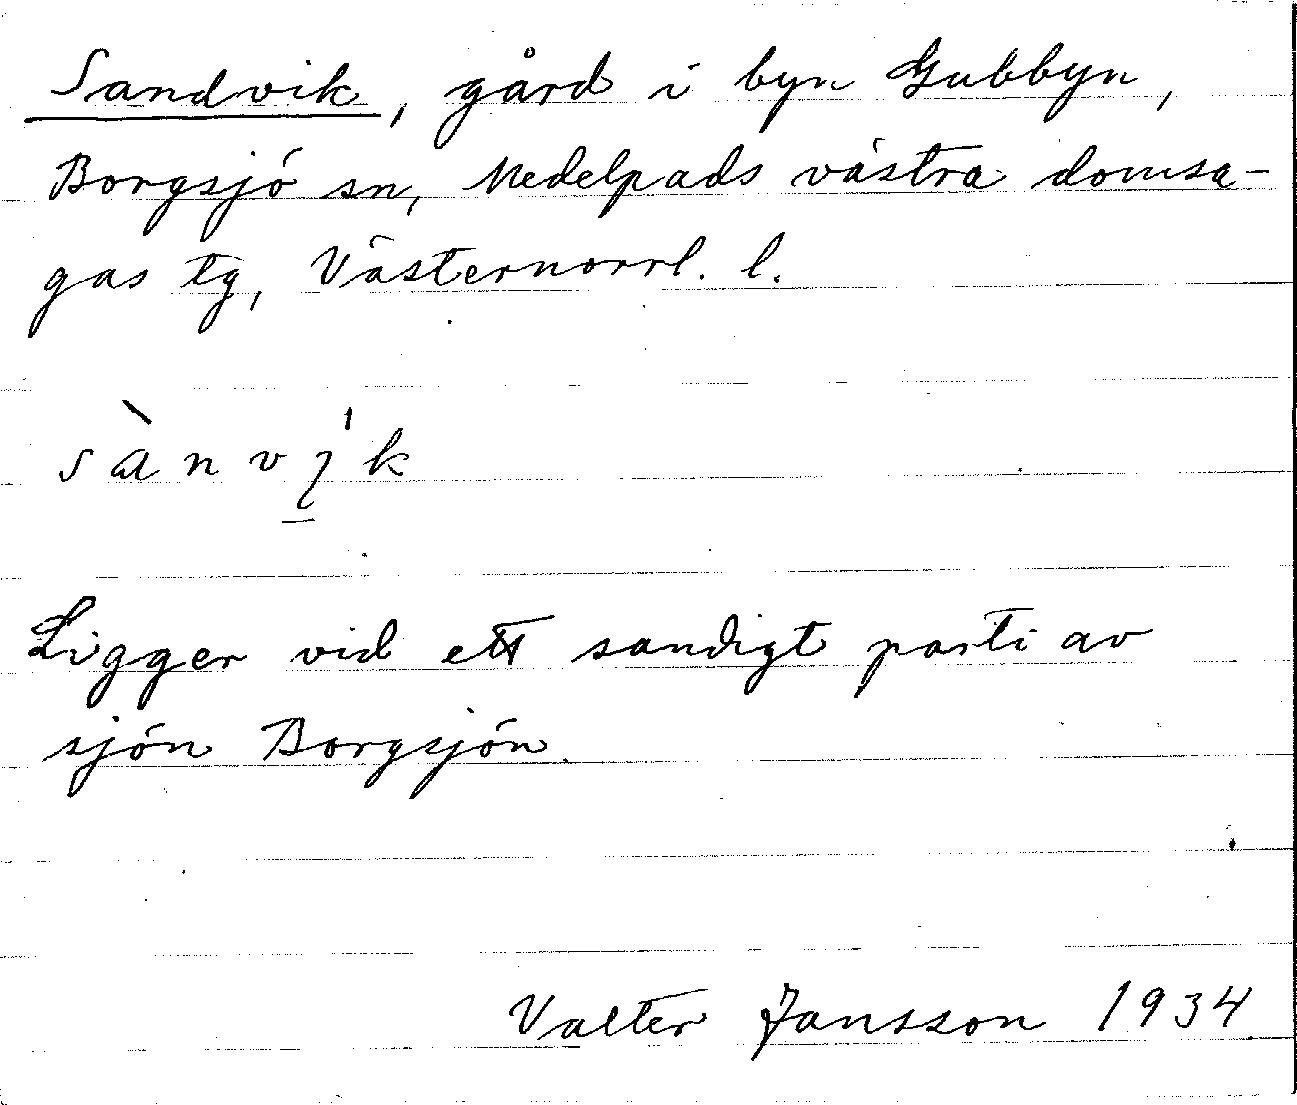 Sandvik, gård i byn Gubbyn,
Borgsjö sn, Medelpads västra domsa-
gas tg, Västernorrl. l.
sànvı̨́k
Ligger vid ett sandigt parti av
sjön Borgsjön.
Valter Jansson 1934